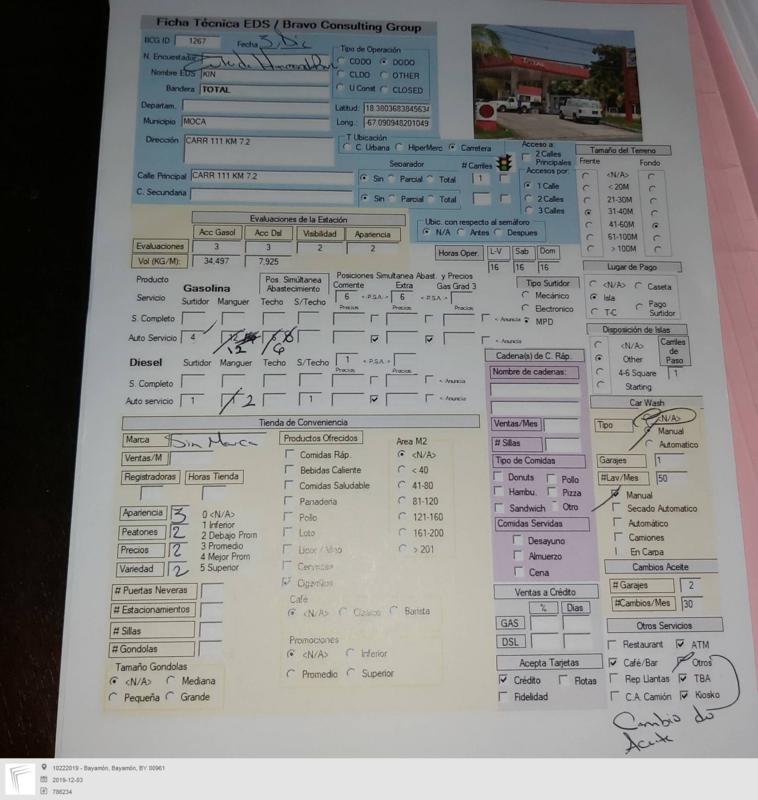 Ficha Técnica EDS / Bravo Consulting Group
BCG ID 1267 Fecha 3, Dic
N. Encuestador
Nombre EDS KIN
Bandera TOTAL
Departam.
Municipio MOCA
Dirección CARR 111 KM 7.2
Calle Principal CARR 111 KM 7.2
C. Secundaria
Tipo de Operación
CODO DODO
CLDO OTHER
U Const CLOSED
Latitud: 18.3803683845634
Long.: -67.090948201049
T Ubicación
C. Urbana HiperMerc Carretera
Separador # Carriles
Sin Parcial Total 1
Sin Parcial Total
Acceso a:
2 Calles Principales
Accesos por:
1 Calle
2 Calles
3 Calles
Ubic. con respecto al semáforo
N/A Antes Despues
Tamaño del Terreno
Frente Fondo
<N/A>
< 20M
21-30M
31-40M
41-60M
61-100M
> 100M
Evaluaciones de la Estación
Acc Gasol Acc Dsl Visibilidad Apariencia
Evaluaciones 3 3 2 2
Vol (KG/M): 34,497 7,925
Horas Oper. L-V Sab Dom
16 16 16
Lugar de Pago
<N/A> Caseta
Isla Pago Surtidor
T-C
Producto
Servicio
Gasolina
Pos. Simultánea Abastecimiento
Posiciones Simultánea Abast. y Precios
Corriente Extra Gas Grad 3
6 < P.S.A. > 6 < P.S.A. >
Surtidor Manguer Techo S/Techo Precios Precios Precios
S. Completo < Anuncia
Auto Servicio 4 12 6 < Anuncia
Tipo Surtidor
Mecánico
Electronico
MPD
Disposición de Islas
<N/A>
Other
4-6 Square
Starting
Carriles de Paso
1
Diesel Surtidor Manguer Techo S/Techo 1 < P.S.A. >
Precios Precios
S. Completo < Anuncia
Auto servicio 1 2 1 < Anuncia
Cadena(s) de C. Ráp.
Nombre de cadenas:
Ventas/Mes
# Sillas
Tipo de Comidas
Donuts Pollo
Hambu. Pizza
Sandwich Otro
Comidas Servidas
Desayuno
Almuerzo
Cena
Car Wash
Tipo <N/A>
Manual
Automatico
Garajes 1
#Lav/Mes 50
Manual
Secado Automatico
Automático
Camiones
En Carpa
Cambios Aceite
# Garajes 2
#Cambios/Mes 30
Tienda de Conveniencia
Marca Sin Marca
Ventas/M
Registradoras Horas Tienda
Apariencia 3
Peatones 2
Precios 2
Variedad 2
0 <N/A>
1 Inferior
2 Debajo Prom
3 Promedio
4 Mejor Prom
5 Superior
# Puertas Neveras
# Estacionamientos
# Sillas
# Gondolas
Tamaño Gondolas
<N/A> Mediana
Pequeña Grande
Productos Ofrecidos
Comidas Ráp.
Bebidas Caliente
Comidas Saludable
Panaderia
Pollo
Loto
Licor / Vino
Cervezas
Cigarrillos
Area M2
<N/A>
< 40
41-80
81-120
121-160
161-200
> 201
Café
<N/A> Clásico Barista
Promociones
<N/A> Inferior
Promedio Superior
Ventas a Crédito
% Dias
GAS
DSL
Acepta Tarjetas
Crédito Flotas
Fidelidad
Otros Servicios
Restaurant ATM
Café/Bar Otros
Rep Llantas TBA
C.A. Camión Kiosko
Cambio de
Aceite
10222019 - Bayamón, Bayamón, BY 00961
2019-12-03
786234